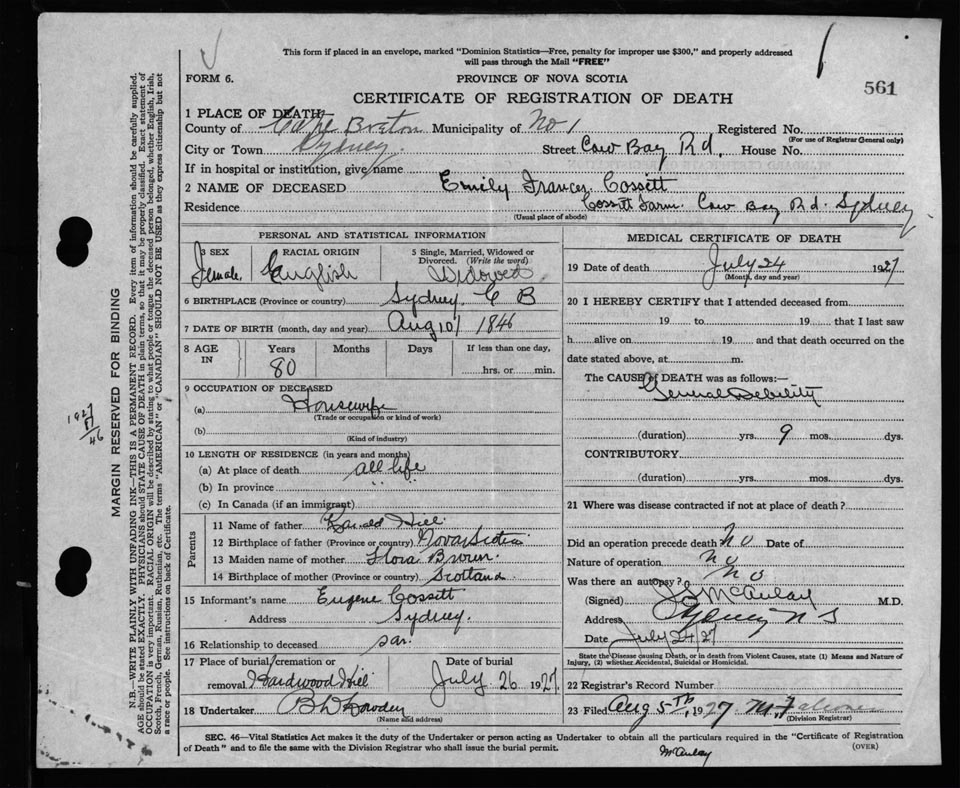 This form if placed in an envelope, marked "Dominion Statistics—Free, penalty for improper use $300," and properly addressed
will pass through the Mail "FREE"
FORM 6.
PROVINCE OF NOVA SCOTIA
561
CERTIFICATE OF REGISTRATION OF DEATH
1 PLACE OF DEATH
County of Cape Breton Municipality of No 1 Registered No.
(For use of Registrar General only)
City or Town Sydney. Street Cow Bay Rd. House No.
If in hospital or institution, give name
2 NAME OF DECEASED Emily Frances Cossett
Residence Cossett Farm Cow Bay Rd. Sydney
(Usual place of abode)
PERSONAL AND STATISTICAL INFORMATION
3 SEX Female
RACIAL ORIGIN English
5 Single, Married, Widowed or Divorced. (Write the word) Widowed
6 BIRTHPLACE (Province or country) Sydney. C B
7 DATE OF BIRTH (month, day and year) Aug 10/ 1846
8 AGE IN Years 80 Months Days If less than one day, hrs. or min.
9 OCCUPATION OF DECEASED
(a) Housewife
(Trade or occupation or kind of work)
(b)
(Kind of industry)
10 LENGTH OF RESIDENCE (in years and months)
(a) At place of death all life
(b) In province " "
(c) In Canada (if an immigrant)
Parents
11 Name of father Hill
12 Birthplace of father (Province or country) Nova Scotia
13 Maiden name of mother Flora Brown
14 Birthplace of mother (Province or country) Scotland
15 Informant's name Eugene Cossett
Address Sydney.
16 Relationship to deceased son.
17 Place of burial/cremation or
removal Hardwood Hill
Date of burial
July 26 1927
18 Undertaker
(Name and address)
MEDICAL CERTIFICATE OF DEATH
19 Date of death July 24 1927
(Month, day and year)
20 I HEREBY CERTIFY that I attended deceased from
19 to 19 that I last saw
h alive on 19 and that death occurred on the
date stated above, at m.
The CAUSE of DEATH was as follows:—
General Debility
(duration) yrs. 9 mos. dys.
CONTRIBUTORY
(duration) yrs. mos. dys.
21 Where was disease contracted if not at place of death?
Did an operation precede death No Date of
Nature of operation no
Was there an autopsy? no
(Signed) McAulay M.D.
Address Sydney N S
Date July 24/27
State the Disease causing Death, or in death from Violent Causes, state (1) Means and Nature of
Injury, (2) whether Accidental, Suicidal or Homicidal.
22 Registrar's Record Number
23 Filed Aug 5th, 1927
(Division Registrar)
SEC. 46—Vital Statistics Act makes it the duty of the Undertaker or person acting as Undertaker to obtain all the particulars required in the "Certificate of Registration
of Death" and to file the same with the Division Registrar who shall issue the burial permit.
(OVER)
McAulay
MARGIN RESERVED FOR BINDING
N.B.—WRITE PLAINLY WITH UNFADING INK—THIS IS A PERMANENT RECORD. Every item of information should be carefully supplied.
AGE should be stated EXACTLY. PHYSICIANS should STATE CAUSE OF DEATH in plain terms, so that it may be properly classified. Exact statement of
OCCUPATION is very important. RACIAL ORIGIN will be described by stating to what people or tongue the deceased person belonged, whether English, Irish,
Scotch, French, German, Russian, Ruthenian, etc. The terms "AMERICAN" or "CANADIAN" SHOULD NOT BE USED as they express citizenship but not
a race or people. See instructions on back of Certificate.
1927
46